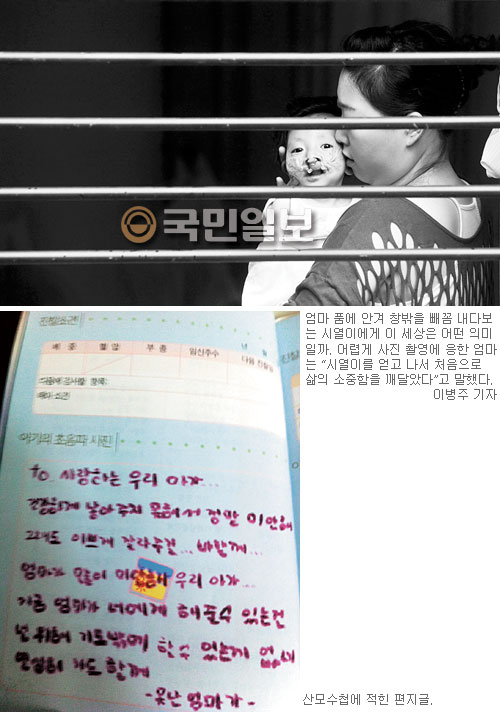 국민일보
엄마 품에 안겨 창밖을 빼꼼 내다보
는 시열이에게 이 세상은 어떤 의미
일까. 어렵게 사진 촬영에 응한 엄마
는 “시열이를 얻고 나서 처음으로
삶의 소중함을 깨달았다”고 말했다.
이병주 기자
체 중 혈 압 부 종 임신주수 다음 진찰일
다음에 검사할 항목:
아기의 초음파 사진
to. 사랑하는 우리 아가...
건강하게 낳아주지 못해서 정말 미안해
그래도 이쁘게 잘라주길... 바랄께...
엄마가 모든이 미안해 우리 아가...
지금 엄마가 너에게 해줄수 있는건
널 위해 기도밖에 할수 있는게 없네
열심히 기도 할께
-못난 엄마가-
산모수첩에 적힌 편지글.